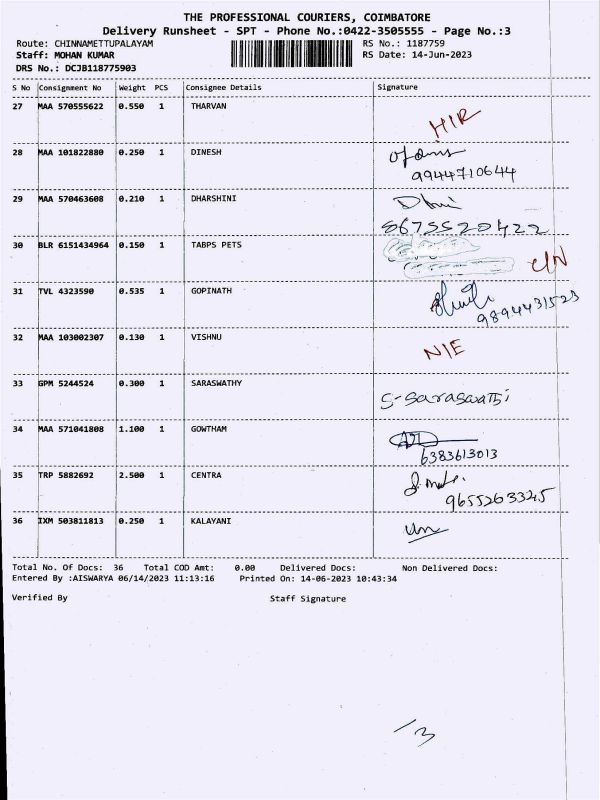 THE PROFESSIONAL COURIERS, COIMBATORE
Delivery Runsheet - SPT - Phone No.:0422-3505555 - Page No.:3
Route: CHINNAMETTUPALAYAM RS No.: 1187759
Staff: MOHAN KUMAR RS Date: 14-Jun-2023
DRS No.: DCJB118775903
S No Consignment No Weight PCS Consignee Details Signature
27 MAA 570555622 0.550 1 THARVAN
28 MAA 101822880 0.250 1 DINESH
9944710644
29 MAA 570463608 0.210 1 DHARSHINI
8675520422
30 BLR 6151434964 0.150 1 TABPS PETS
31 TVL 4323590 0.535 1 GOPINATH
9894431523
32 MAA 103002307 0.130 1 VISHNU
NIE
33 GPM 5244524 0.300 1 SARASWATHY
34 MAA 571041808 1.100 1 GOWTHAM
6383613013
35 TRP 5882692 2.500 1 CENTRA
9655263325
36 IXM 503811813 0.250 1 KALAYANI
Total No. Of Docs: 36 Total COD Amt: 0.00 Delivered Docs: Non Delivered Docs:
Entered By :AISWARYA 06/14/2023 11:13:16 Printed On: 14-06-2023 10:43:34
Verified By Staff Signature